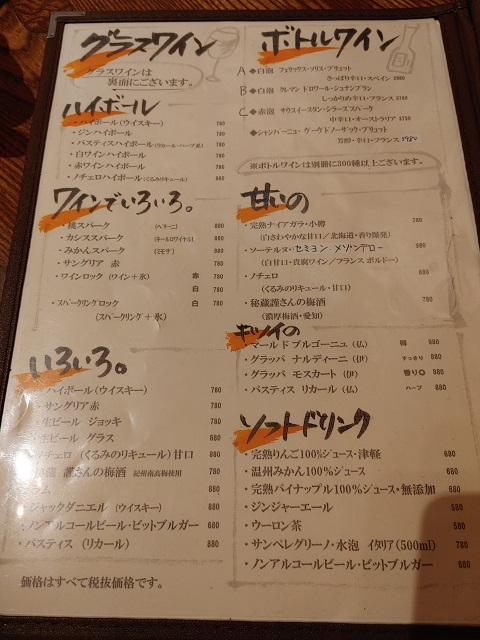 グラスワイン
グラスワインは
裏面にございます。
ハイボール
・ハイボール (ウイスキー) 780
・ジンハイボール 780
・パスティスハイボール (リカール・ハーブ系) 780
・白ワインハイボール 780
・赤ワインハイボール 780
・ノチェロハイボール (くるみリキュール) 780
ワインでいろいろ。
・桃スパーク (ベリーニ) 880
・カシススパーク (キールロワイヤル) 880
・みかんスパーク (ミモザ) 880
・サングリア 赤 780
・ワインロック (ワイン+氷) 赤 780
白 780
・スパークリングロック 白 780
(スパークリング+氷)
いろいろ。
・ハイボール (ウイスキー) 780
・サングリア赤 780
・生ビール ジョッキ 780
・生ビール グラス 680
・ノチェロ (くるみのリキュール) 甘口 880
秘蔵 讃さんの梅酒 紀州南高梅使用 780
880
・ジャックダニエル (ウイスキー) 880
・ノンアルコールビール・ビットブルガー 680
・パスティス (リカール) 880
価格はすべて税抜価格です。
ボトルワイン
A ◆白泡 フェリックス・ソリス・ブリュット
さっぱり辛口・スペイン
B ◆白泡 クレマン ドロワール・ジュナンブラン
しっかりめ辛口・フランス
C ◆赤泡 サウスイースタン・シラーズスパーク
中辛口・オーストラリア
◆シャンパーニュ
芳醇・辛口・フランス
※ボトルワインは別冊に300種以上ございます。
甘いの
・完熟ナイアガラ・小樽 780
(白さわやかな甘口/北海道・香り爆発)
・ソーテルヌ・セミヨン・メゾンデロー 880
(白甘口・貴腐ワイン/フランス ボルドー)
・ノチェロ 880
(くるみのリキュール・甘口)
・秘蔵讃さんの梅酒 780
(濃厚梅酒・愛知)
キツイの
・マール ド ブルゴーニュ (仏) 樽 880
・グラッパ ナルディーニ (伊) すっきり 880
・グラッパ モスカート (伊) 香り◎ 880
・パスティス リカール (仏) ハーブ 880
ソフトドリンク
・完熟りんご100%ジュース・津軽 680
・温州みかん100%ジュース 680
・完熟パイナップル100%ジュース・無添加 680
・ジンジャーエール 580
・ウーロン茶 580
・サンペレグリーノ・水泡 イタリア (500ml) 780
・ノンアルコールビール・ビットブルガー 680